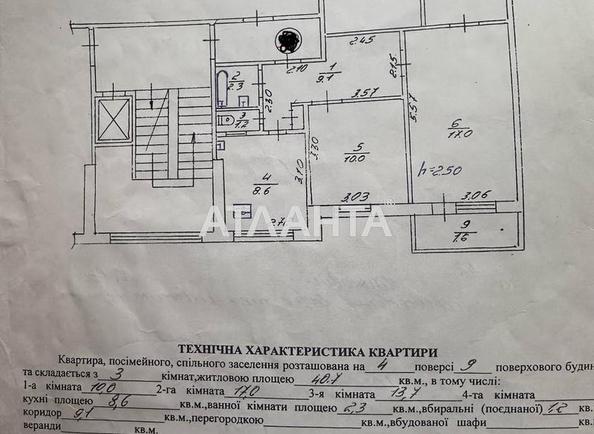 2.45
2.10
1
9.1
2.15
2
2.3
2.30
3.57
5.57
3
1.2
6
17.0
3.30
5
10.0
4
8.6
3.10
h=2.50
3.03
3.06
2.71
9
1.6
АТЛАНТА
ТЕХНІЧНА ХАРАКТЕРИСТИКА КВАРТИРИ
Квартира, посімейного, спільного заселення розташована на 4 поверсі 9 поверхового будин
та складається з 3 кімнат,житловою площею 40.7 кв.м., в тому числі:
1-а кімната 10,0 2-га кімната 17,0 3-я кімната 13,7 4-та кімната
кухні площею 8,6 кв.м.,ванної кімнати площею 2,3 кв.м.,вбиральні (поєднаної) 1.2 кв.
коридор 9,1 кв.м., перегородкою кв.м., вбудованої шафи кв.м.
веранди кв.м.